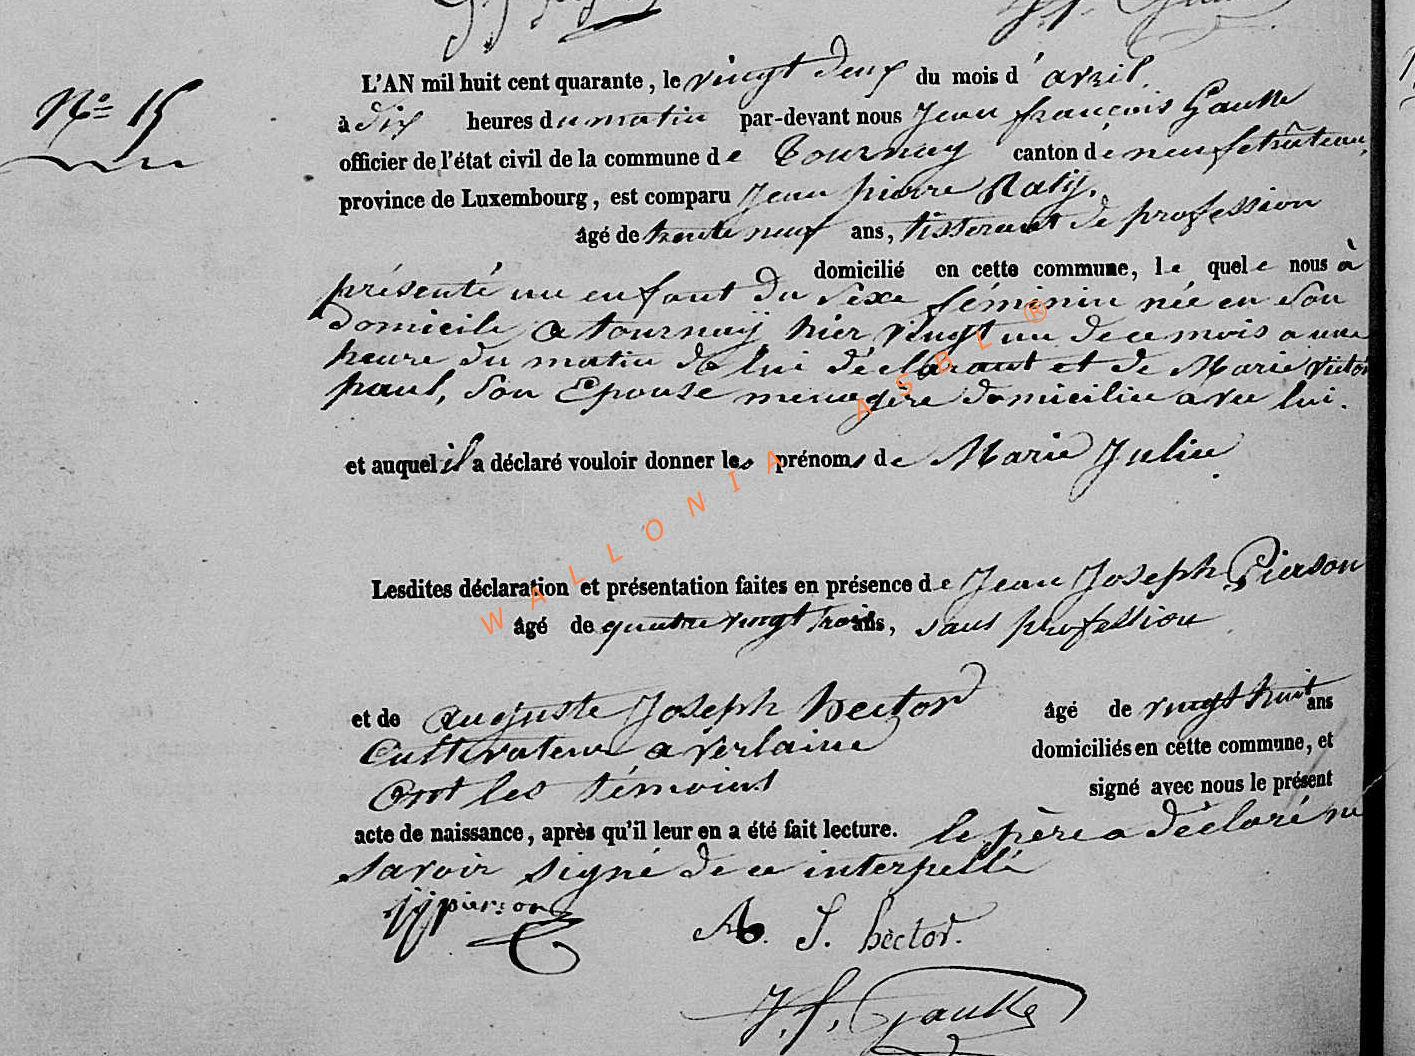 Nº 15
L'AN mil huit cent quarante, le vingt deux du mois d'avril
à dix heures du matin par-devant nous Jean françois Gaulle
officier de l'état civil de la commune de Tournay canton dé neufchâteau,
province de Luxembourg, est comparu Jean pierre
âgé de trente neuf ans, tisserant de profession
domicilié en cette commune, le quel e nous à
présenté un enfant du Sexe féminin née en Son
domicile a tournay, hier vingt un de ce mois a une
heure du matin de lui déclarant et de Marie victoi
paul, Son Epouse menagère domicilie avec lui.
et auquel il a déclaré vouloir donner les prénoms de Marie Julie
Lesdites déclaration et présentation faites en présence de Jean Joseph Pierson
âgé de quatre vingt trois ans, sans profession
et de auguste Joseph hector âgé de vingt huit ans
Cultivateur a verlaine domiciliés en cette commune, et
Ont les témoins signé avec nous le présent
acte de naissance, après qu'il leur en a été fait lecture. le père a déclaré ne
savoir signé de ce interpellé
jj pierson
A. J. hector.
J. f. Gaulle
WALLONIA ASBL ®